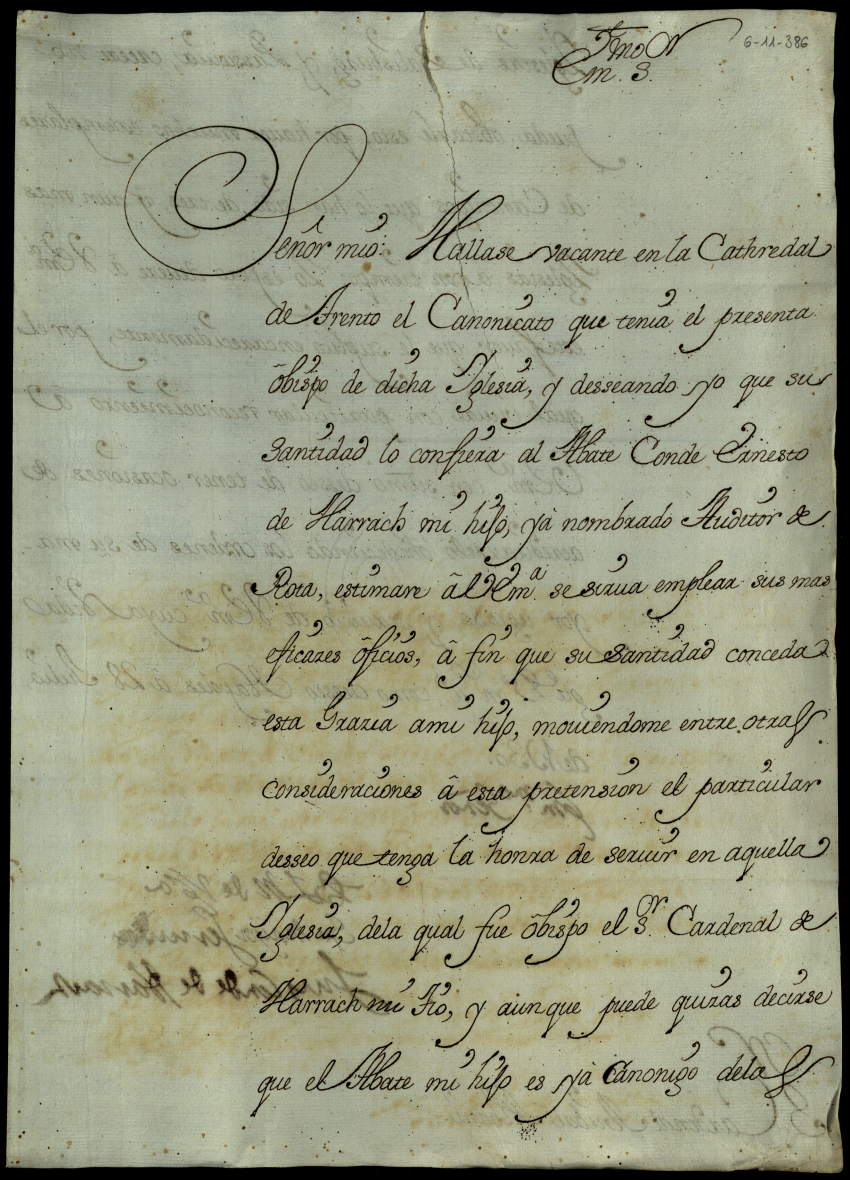 6-11-386
Em.mo S.or
Señor mio: Hallase vacante en la Cathredal
de Trento el Canonicato que tenia el presente
obispo de dicha Yglesia, y desseando yo que su
Santidad lo confiera al Abate Conde Ernesto
de Harrach mi hijo, ya nombrado Auditor de
Rota, estimare â V Em.a se sirua emplear sus mas
eficazes ôficios, â fin que su Santidad conceda
esta Grazia a mi hijo, mouiendome entre otras
consideraciones â esta pretension el particular
desseo que tenga la honra de seruir en aquella
Yglesia, dela qual fue ôbispo el S.r Cardenal de
Harrach mi Tio, y aunque puede quizas decirse
que el Abate mi hijo es ya Canonigo delas